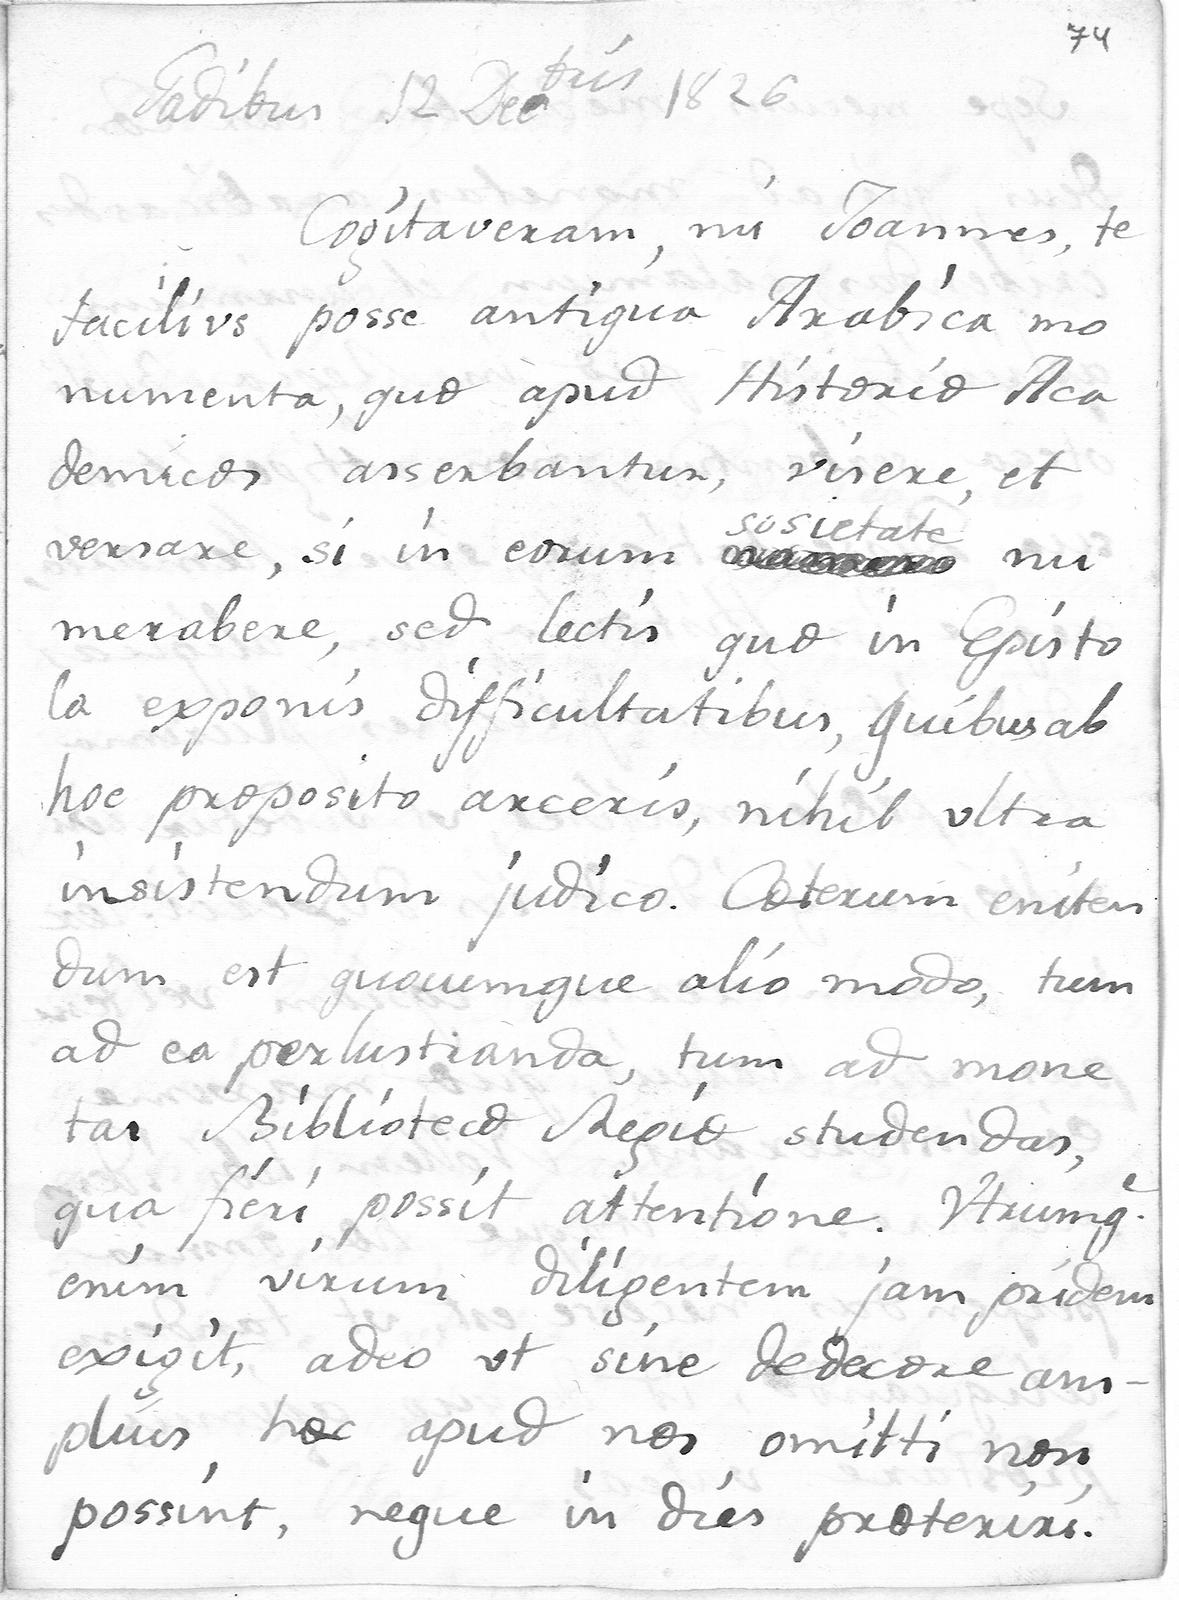 74
Gadibus 12 Decbris 1826
Cogitaveram, mi Joannes, te
facilius posse antiqua Arabica mo
numenta, quæ apud Historiæ Aca
demicos asserbantur, visere, et
versare, si in eorum sosietate nu
merabere, sed lectis quæ in Episto
la exponis difficultatibus, quibus ab
hoc proposito arceris, nihil vltra
insistendum judico. Cæterum eniten
dum est quoumque alio modo, tum
ad ea perlustranda, tum ad mone
tas Bibliotecæ Regiæ studendas,
qua fieri possit attentione. Vtrumq.
enim virum diligentem jam pridem
exigit, adeo vt sine dedecore am-
plius hoc apud nos omitti non
possint, neque in dies præteriri.